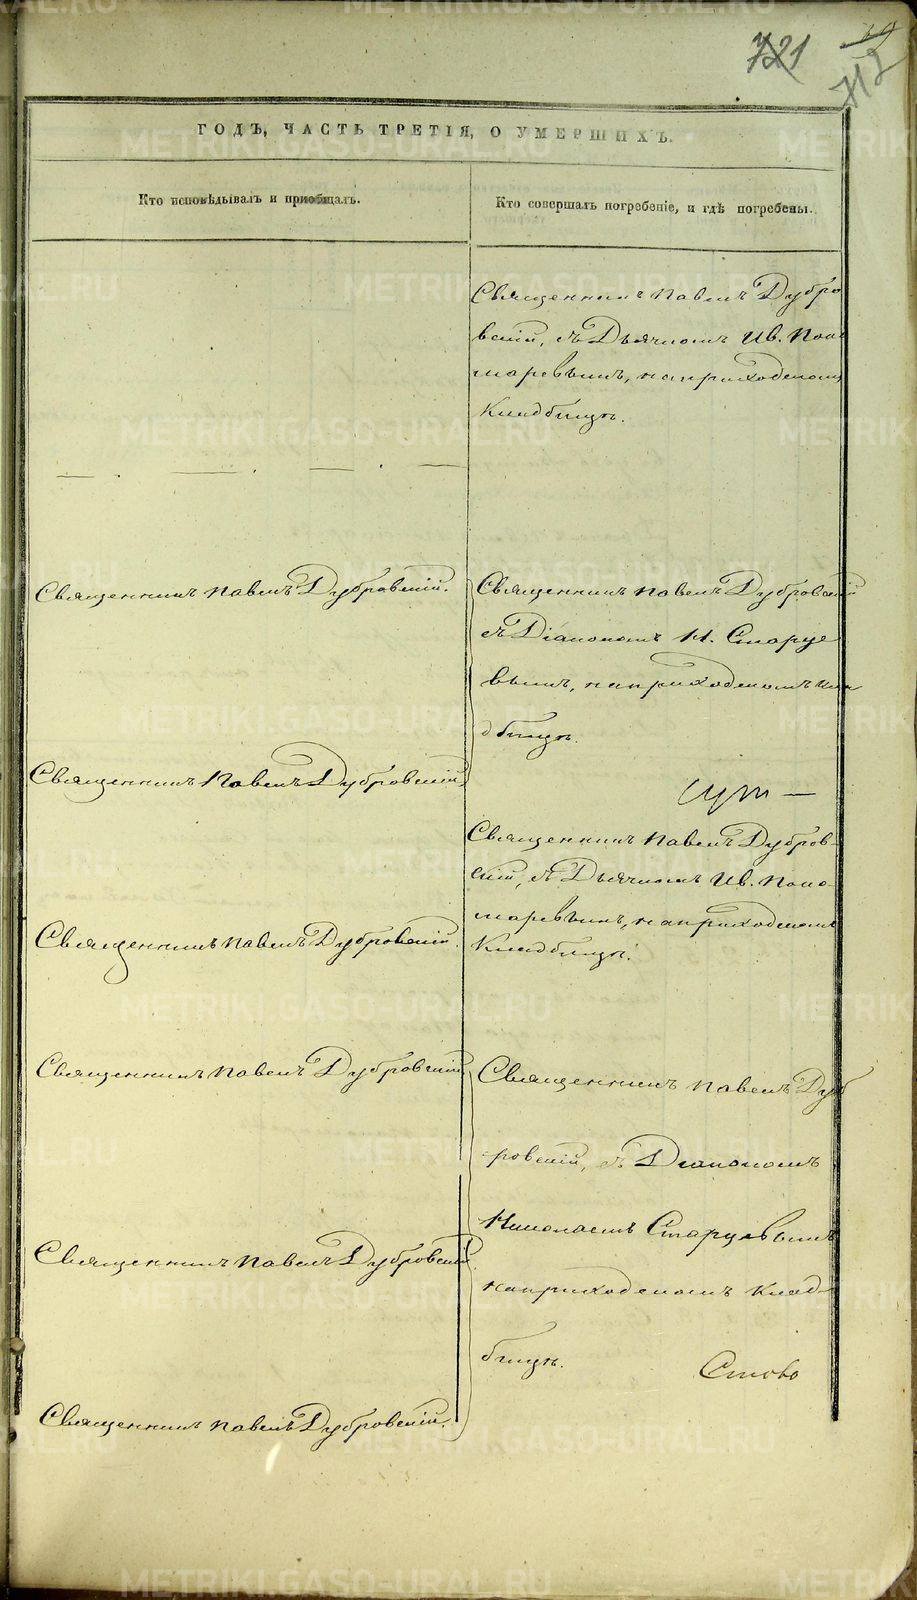 721
712
ГОДЪ, ЧАСТЬ ТРЕТІЯ, О УМЕРШИХЪ.
Кто исповѣдывалъ и пріобщалъ.
Кто совершалъ погребеніе, и гдѣ погребены.
Священникъ Павелъ Дубро
вскій, съ Дьячкомъ Ив. Поно
маревымъ, на приходскомъ
Кладбищѣ.
Священникъ Павелъ Дубровскій.
Священникъ Павелъ Дубровскій
съ Діакономъ Н. Старце
вымъ, на приходскомъ кла
дбищѣ.
Священникъ Павелъ Дубровскій
Священникъ Павелъ Дубров-
скій, съ Дьячкомъ Ив. Поно-
маревымъ, на приходскомъ
Кладбищѣ.
Священникъ Павелъ Дубровскій.
Священникъ Павелъ Дубровскій
Священникъ Павелъ Дуб
ровскій, съ Діакономъ
Николаемъ Старцевымъ
на приходскомъ Клад-
бищѣ.
Священникъ Павелъ Дубровскій.
Священникъ Павелъ Дубровскій.
METRIKI.GASO-URAL.RU